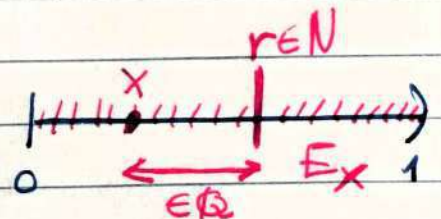 r∈N
x
0 ∈Q E_x 1